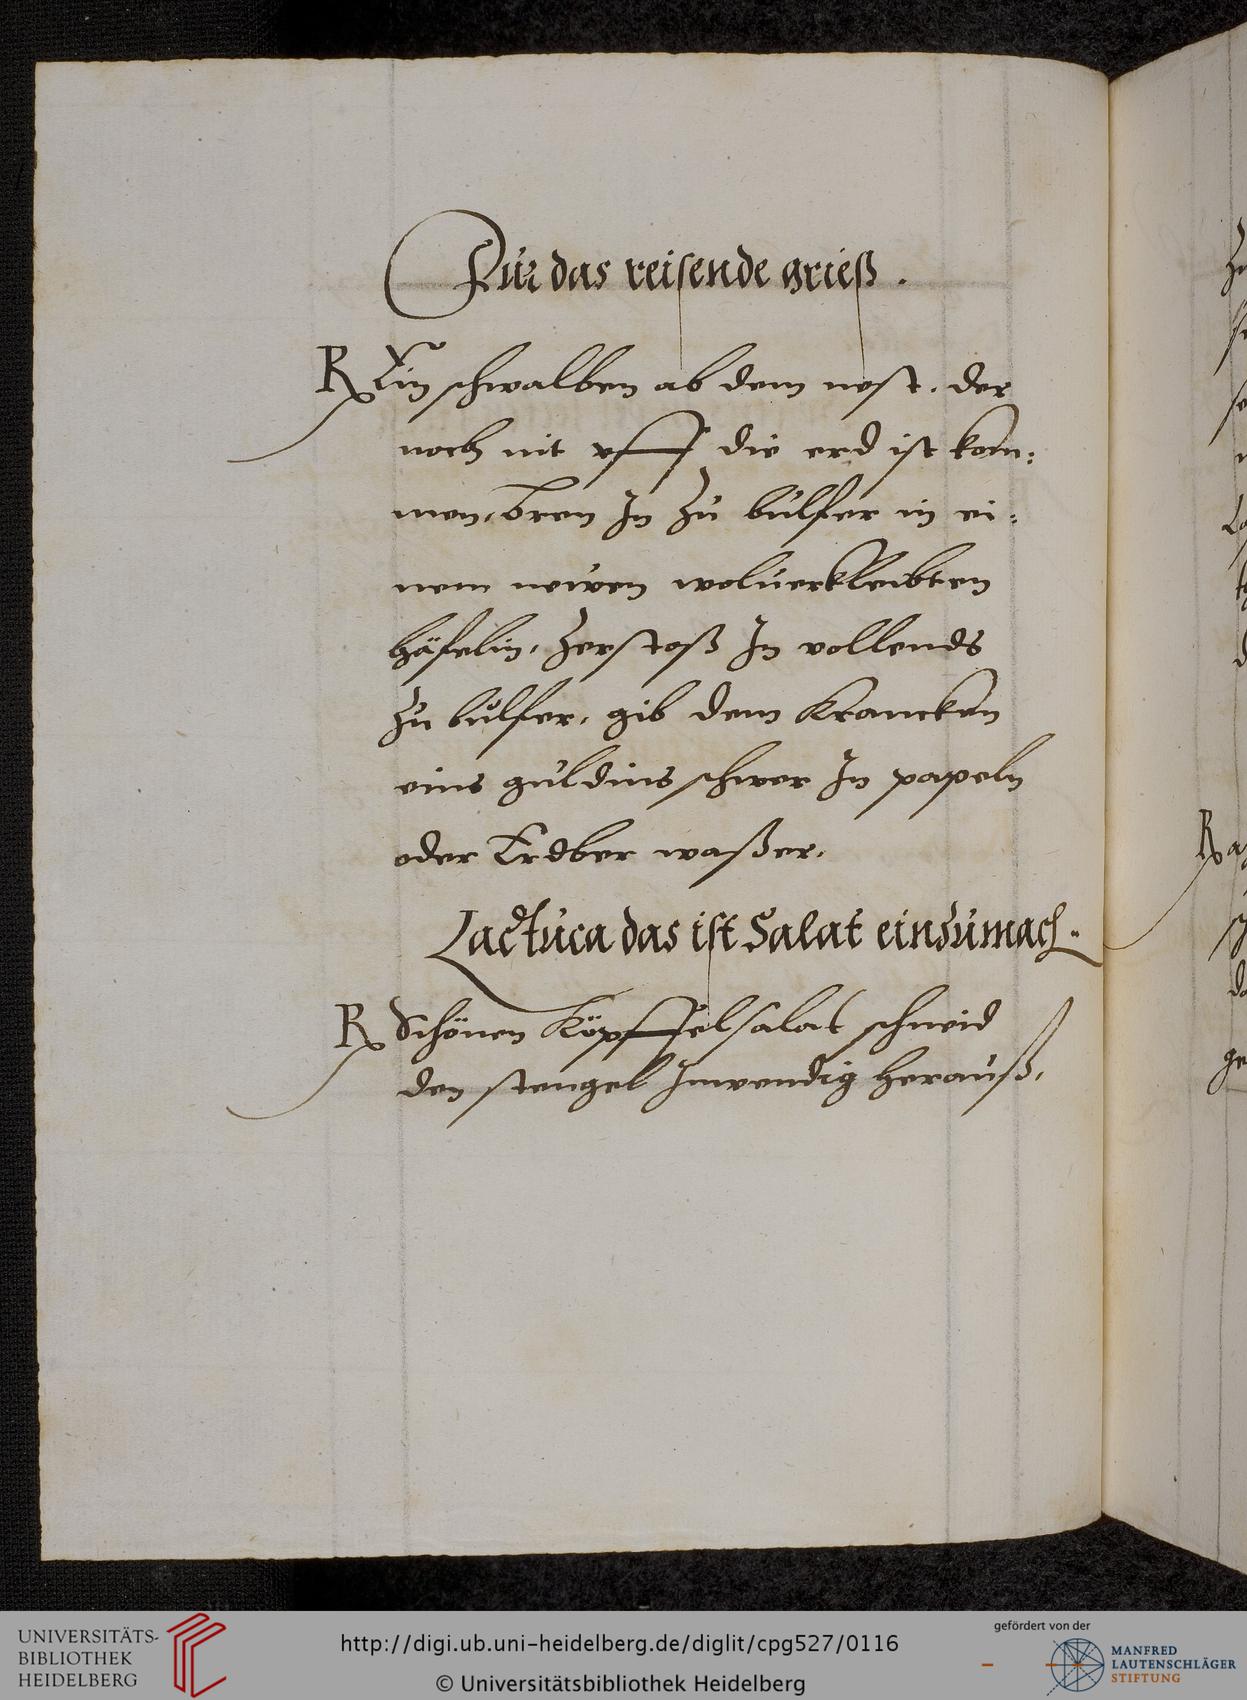 Für das reisende grieß.
℞ Ein schwalben ab dem nest, der
noch nit vff die erd ist kom:
men, bren In zu bulfer in ei:
nem newen woluerkleibten
häfelin, zerstoß In vollends
zu bulfer, gib dem Krancken
eins guldins schwer In papeln
oder Erdber waßer,
Lactuca das ist Salat einzumach..
℞ Schönen Köpffelsalat schneid
den stengel Inwendig herauß,
UNIVERSITÄTS-
BIBLIOTHEK
HEIDELBERG
http://digi.ub.uni-heidelberg.de/diglit/cpg527/0116
© Universitätsbibliothek Heidelberg
gefördert von der
MANFRED
LAUTENSCHLÄGER
STIFTUNG